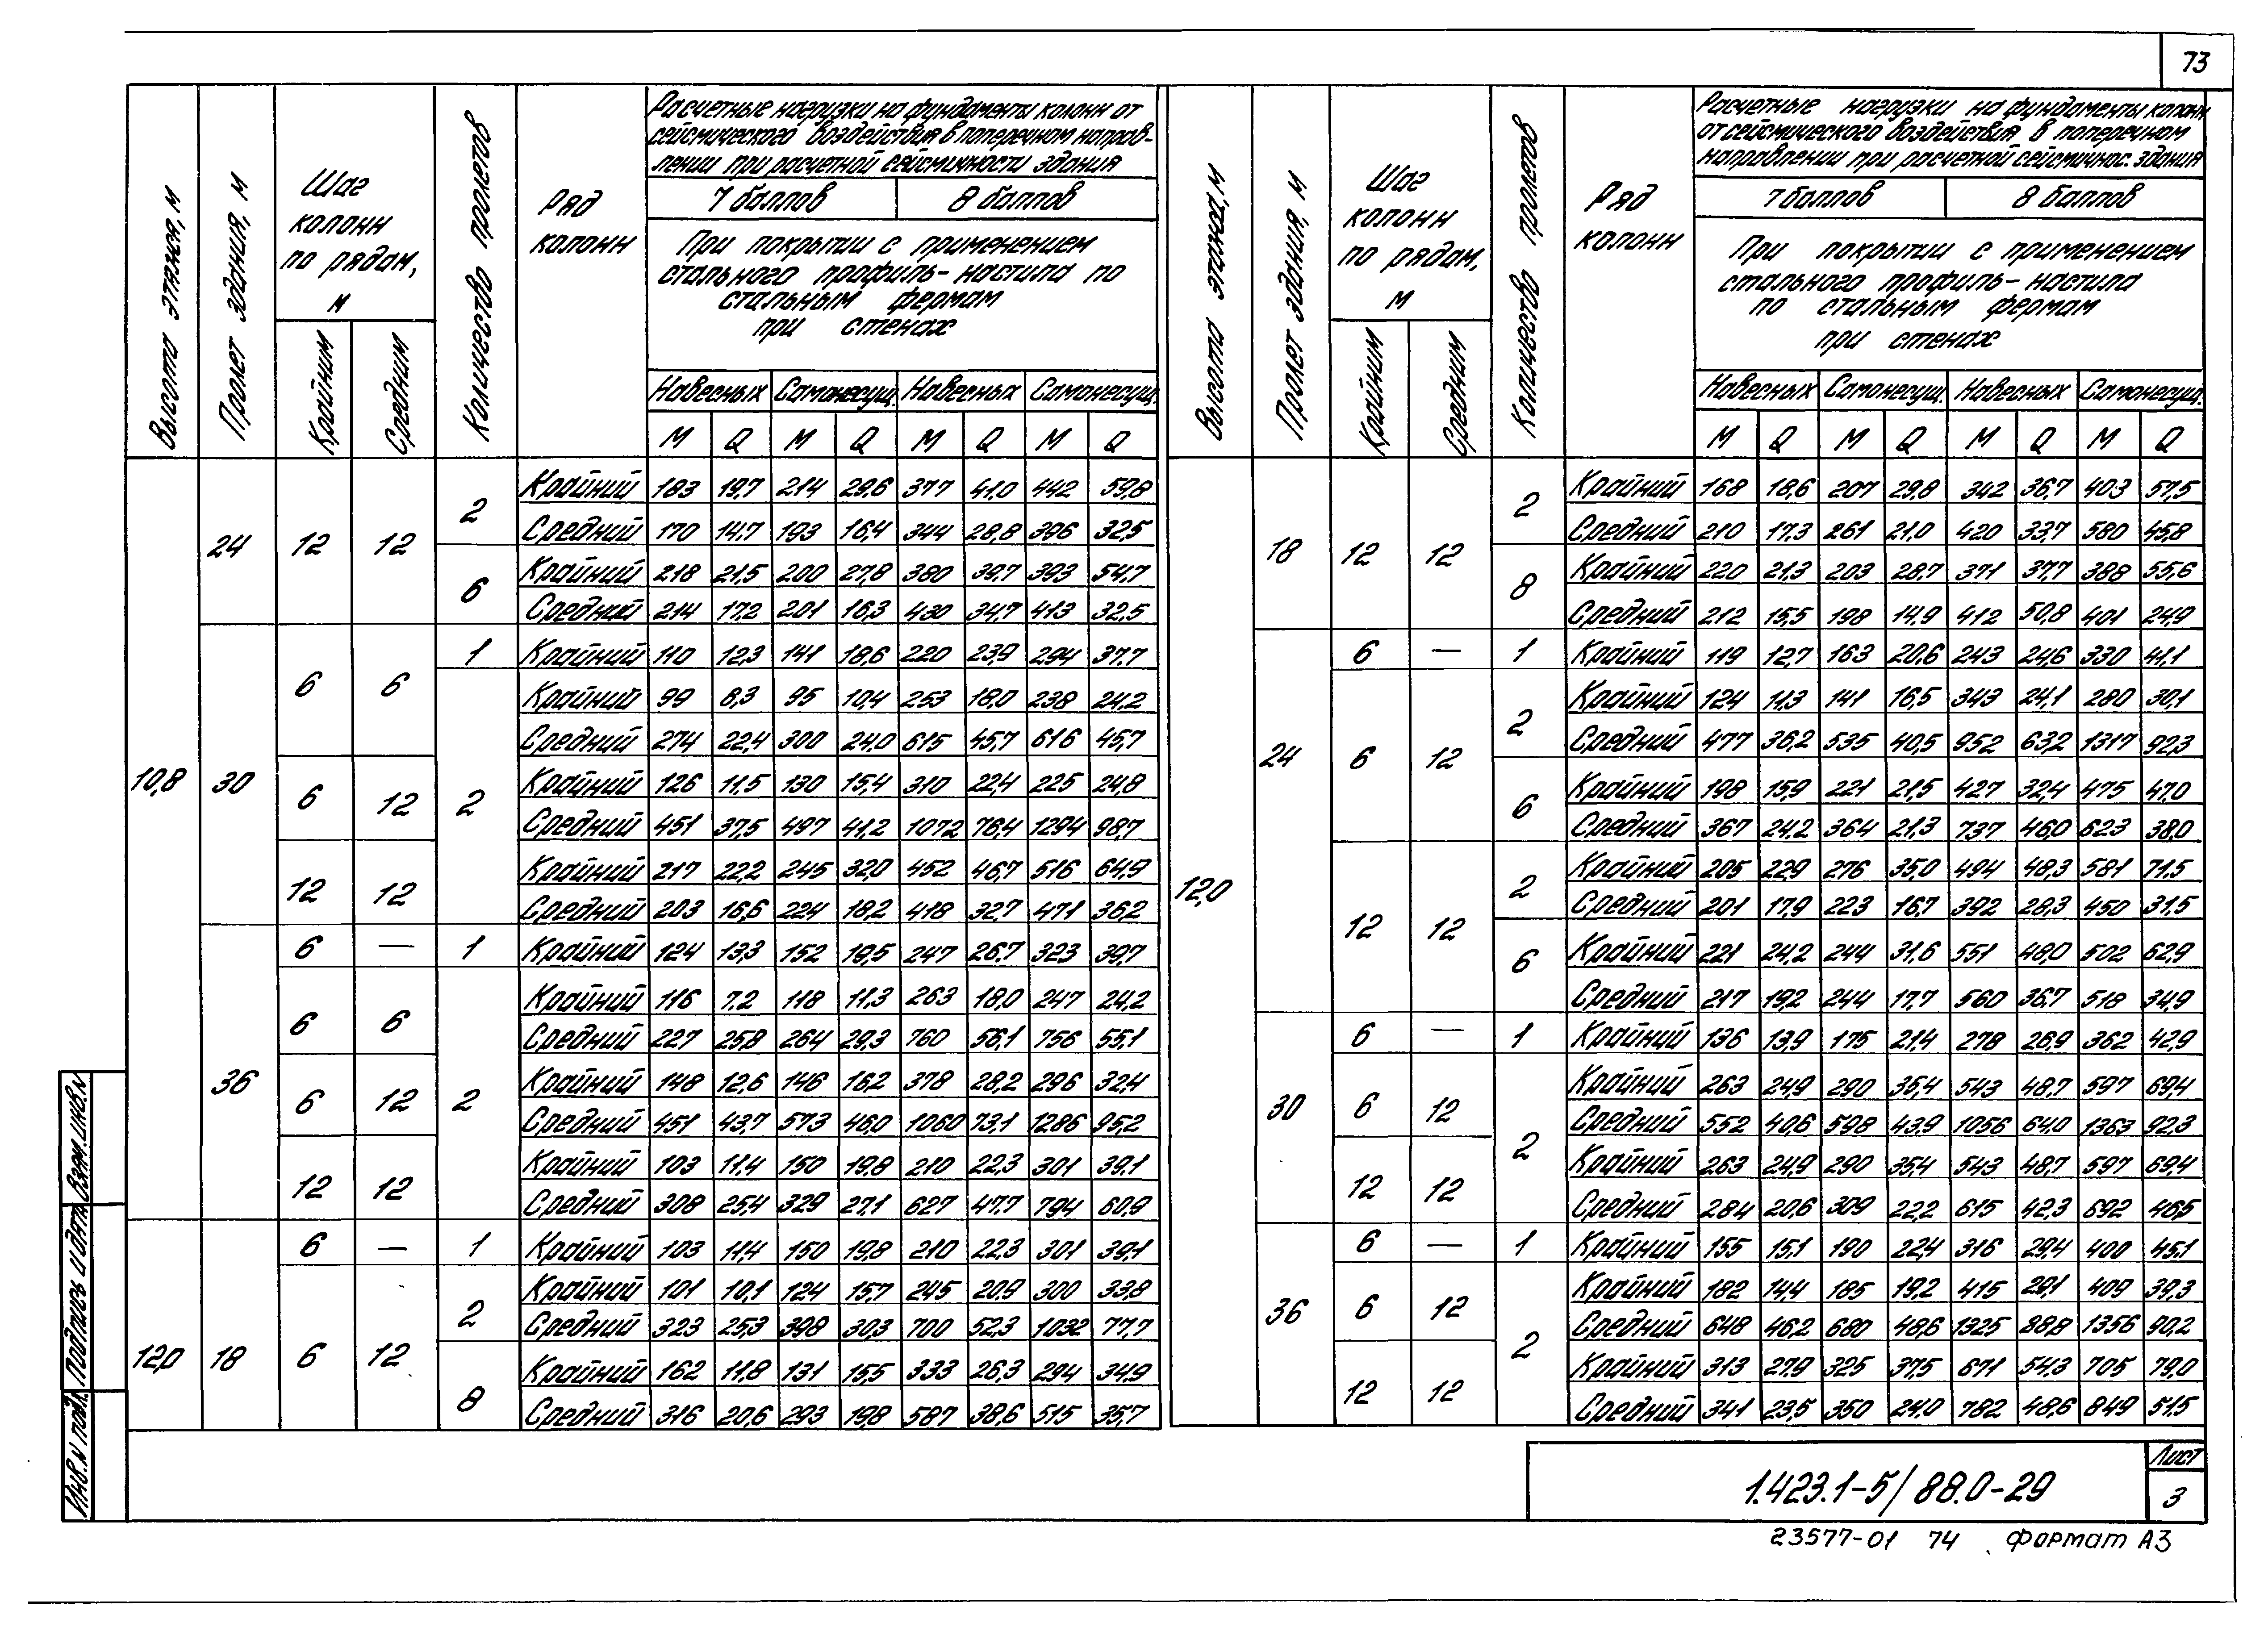 73
Высота этажа, м
Пролет здания, м
Шаг колонн по рядам, м
Крайним
Средним
Количество пролетов
Ряд колонн
Расчетные нагрузки на фундаменты колонн от
сейсмического воздействия в поперечном направ-
лении при расчетной сейсмичности здания
7 баллов 8 баллов
При покрытии с применением
стального профиль-настила по
стальным фермам
при стенах
Навесных Самонесущ. Навесных Самонесущ.
M Q M Q M Q M Q
10,8 24 12 12 2 Крайний 183 19,7 214 29,6 377 41,0 442 59,8
Средний 170 14,7 193 16,4 344 28,8 396 32,5
6 Крайний 218 21,5 200 27,8 380 39,7 393 54,7
Средний 214 17,2 201 16,3 430 34,7 413 32,5
30 6 6 1 Крайний 110 12,3 141 18,6 220 23,9 294 37,7
2 Крайний 99 6,3 95 10,4 253 18,0 238 24,2
Средний 274 22,4 300 24,0 615 45,7 616 45,7
6 12 Крайний 126 11,5 130 15,4 310 22,4 225 24,8
Средний 451 37,5 497 41,2 1072 76,4 1294 98,7
12 12 Крайний 217 22,2 245 32,0 452 46,7 516 64,9
Средний 203 16,6 224 18,2 418 32,7 471 36,2
36 6 — 1 Крайний 124 13,3 152 19,5 247 26,7 323 39,7
6 6 2 Крайний 116 7,2 118 11,3 263 18,0 247 24,2
Средний 227 25,8 264 29,3 760 56,1 756 55,1
6 12 Крайний 148 12,6 146 16,2 378 28,2 296 32,4
Средний 451 43,7 573 46,0 1060 73,1 1286 95,2
12 12 Крайний 103 11,4 150 19,8 210 22,3 301 39,1
Средний 308 25,4 329 27,1 627 47,7 794 60,9
12,0 18 6 — 1 Крайний 103 11,4 150 19,8 210 22,3 301 39,1
6 12 2 Крайний 101 10,1 124 15,7 245 20,9 300 33,8
Средний 323 25,3 398 30,3 700 52,3 1032 77,7
8 Крайний 162 11,8 131 15,5 333 26,3 294 34,9
Средний 316 20,6 293 19,8 587 38,6 515 35,7
Высота этажа, м
Пролет здания, м
Шаг колонн по рядам, м
Крайним
Средним
Количество пролетов
Ряд колонн
Расчетные нагрузки на фундаменты колонн
от сейсмического воздействия в поперечном
направлении при расчетной сейсмичнос. здания
7 баллов 8 баллов
При покрытии с применением
стального профиль-настила
по стальным фермам
при стенах
Навесных Самонесущ. Навесных Самонесущ.
M Q M Q M Q M Q
12,0 18 12 12 2 Крайний 168 18,6 207 29,8 342 36,7 403 57,5
Средний 210 17,3 261 21,0 420 33,7 580 45,8
8 Крайний 220 21,3 203 28,7 371 37,7 388 55,6
Средний 212 15,5 198 14,9 412 50,8 401 24,9
24 6 — 1 Крайний 119 12,7 163 20,6 243 24,6 330 41,1
6 12 2 Крайний 124 11,3 141 16,5 343 24,1 280 30,1
Средний 477 36,2 535 40,5 952 63,2 1317 92,3
6 Крайний 198 15,9 221 21,5 427 32,4 475 47,0
Средний 367 24,2 364 21,3 737 46,0 623 38,0
12 12 2 Крайний 205 22,9 276 35,0 494 48,3 581 71,5
Средний 201 17,9 223 16,7 392 28,3 450 31,5
6 Крайний 221 24,2 244 31,6 551 48,0 502 62,9
Средний 217 19,2 244 17,7 560 36,7 518 34,9
30 6 — 1 Крайний 136 13,9 175 21,4 278 26,9 362 42,9
6 12 2 Крайний 263 24,9 290 35,4 543 48,7 597 69,4
Средний 552 40,6 598 43,9 1056 64,0 1363 92,3
12 12 Крайний 263 24,9 290 35,4 543 48,7 597 69,4
Средний 284 20,6 309 22,2 615 42,3 692 46,5
36 6 — 1 Крайний 155 15,1 190 22,4 316 29,4 400 45,1
6 12 2 Крайний 182 14,4 185 19,2 415 29,1 409 39,3
Средний 648 46,2 680 48,6 1325 88,8 1356 90,2
12 12 Крайний 313 27,9 325 37,5 671 54,3 705 79,0
Средний 341 23,5 350 24,0 782 48,6 849 51,5
Инв. N подл. Подпись и дата Взам. инв. N
1.423.1-5/88.0-29
Лист
3
23577-01 74 Формат А3